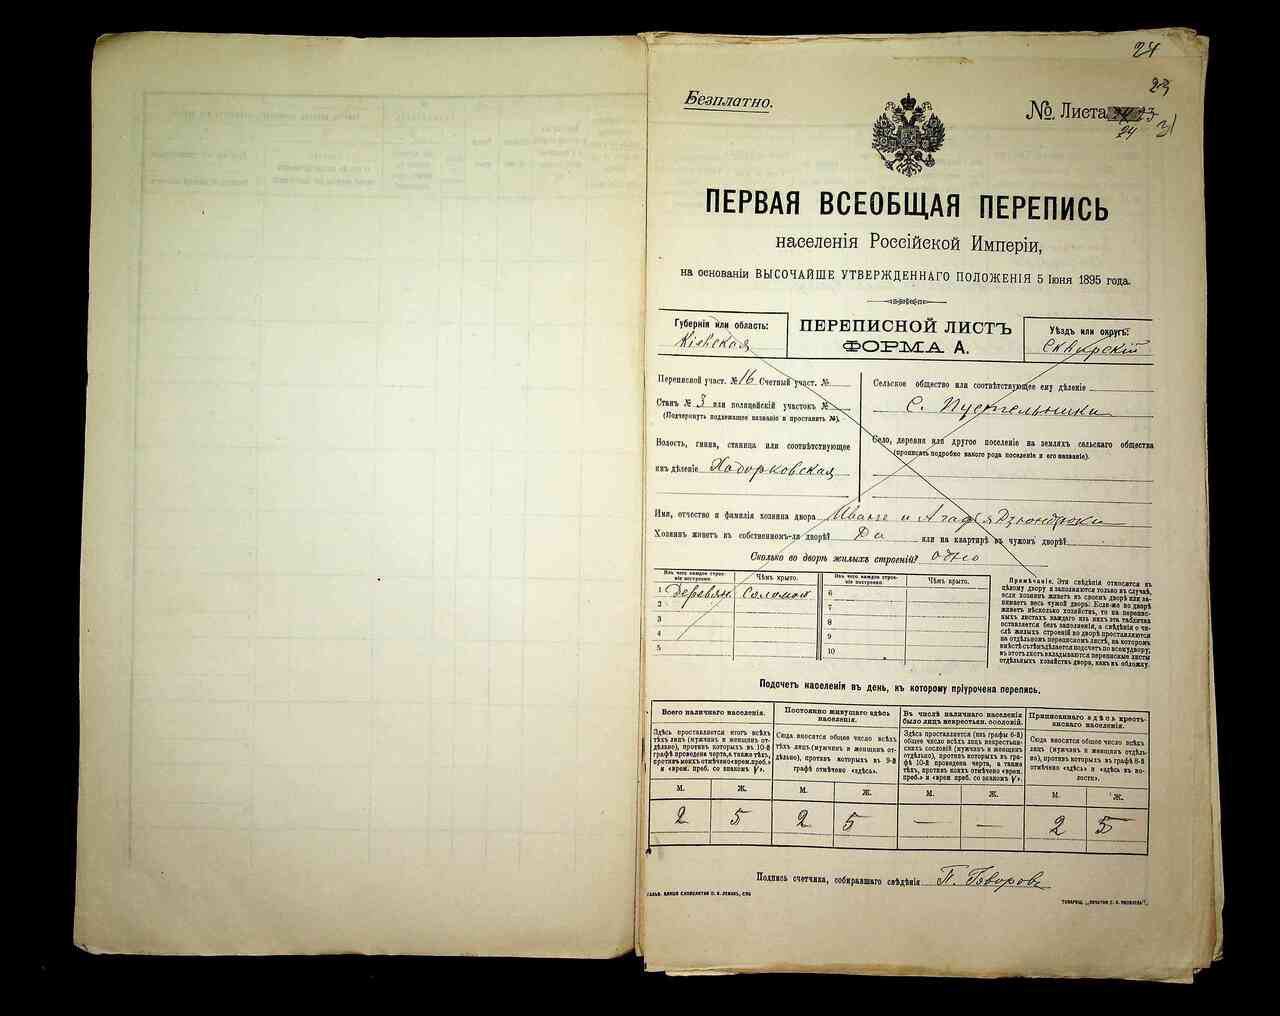 24
23
Безплатно.
№ Листа 23
24
31
ПЕРВАЯ ВСЕОБЩАЯ ПЕРЕПИСЬ
населенія Россійской Имперіи,
на основаніи ВЫСОЧАЙШЕ УТВЕРЖДЕННАГО ПОЛОЖЕНІЯ 5 Іюня 1895 года.
Губернія или область:
Кіевская
ПЕРЕПИСНОЙ ЛИСТЪ
ФОРМА А.
Уѣздъ или округъ:
Сквирскій
Переписной участ. № 16 Счетный участ. №
Станъ № 3 или полицейскій участокъ №
(Подчеркнуть подлежащее названіе и проставить №).
Волость, гмина, станица или соотвѣтствующее
имъ дѣленіе Ходорковская
Сельское общество или соотвѣтствующее ему дѣленіе
С. Пустельники
Село, деревня или другое поселеніе на земляхъ сельскаго общества
(прописать подробно какого рода поселеніе и его названіе).
Имя, отчество и фамилія хозяина двора и Агафія
Хозяинъ живетъ въ собственномъ-ли дворѣ? Да или на квартирѣ въ чужомъ дворѣ?
Сколько во дворѣ жилыхъ строеній? одно
Изъ чего каждое строеніе построено.
Чѣмъ крыто.
Изъ чего каждое строеніе построено.
Чѣмъ крыто.
1 Деревян. Соломой 6
2 7
3 8
4 9
5 10
Примѣчаніе. Эти свѣдѣнія относятся къ
цѣлому двору и заполняются только въ случаѣ,
если хозяинъ живетъ въ своемъ дворѣ или занимаетъ
весь чужой дворъ. Если-же во дворѣ
живетъ нѣсколько хозяйствъ, то на переписныхъ
листахъ каждаго изъ нихъ эта табличка
оставляется безъ заполненія, а свѣдѣнія о числѣ
жилыхъ строеній во дворѣ проставляются
на отдѣльномъ переписномъ листѣ, на которомъ
вмѣстѣ съ тѣмъ дѣлается подсчетъ по всему двору;
въ этотъ листъ вкладываются переписные листы
отдѣльныхъ хозяйствъ двора, какъ въ обложку.
Подсчетъ населенія въ день, къ которому пріурочена перепись.
Всего наличнаго населенія.
Здѣсь проставляется итогъ всѣхъ
тѣхъ лицъ (мужчинъ и женщинъ отдѣльно),
противъ которыхъ въ 10-й
графѣ проведена черта, а также тѣхъ,
противъ коихъ отмѣчено «врем. преб.»
и «врем. преб. со знакомъ V».
Постоянно живущаго здѣсь
населенія.
Сюда вносится общее число всѣхъ
тѣхъ лицъ (мужчинъ и женщинъ отдѣльно),
противъ которыхъ въ 9-й
графѣ отмѣчено «здѣсь».
Въ числѣ наличнаго населенія
было лицъ некрестьян. сословій.
Здѣсь проставляется (изъ графы 6-й)
общее число всѣхъ лицъ некрестьянскихъ
сословій (мужчинъ и женщинъ
отдѣльно), противъ которыхъ въ графѣ
10-й проведена черта, а также
тѣхъ, противъ коихъ отмѣчено «врем.
преб.» и «врем. преб. со знакомъ V».
Приписаннаго здѣсь крестьянскаго
населенія.
Сюда вносится общее число всѣхъ
лицъ (мужчинъ и женщинъ отдѣльно),
противъ которыхъ въ графѣ 8-й
отмѣчено «здѣсь» и «здѣсь въ волости».
М. Ж. М. Ж. М. Ж. М. Ж.
2 5 2 5 — — 2 5
Подпись счетчика, собиравшаго свѣдѣнія П. Говоровъ